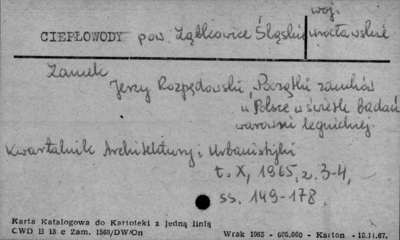 woj.
CIEPŁOWODY pow. Ząbkowice Śląskie wrocławskie
Zamek
Jerzy Rozpędowski, "Początki zamków
w Polsce w świetle badań
warowni legnickiej.
Kwartalnik Architektury i Urbanistyki
t. X, 1965, z. 3-4,
ss. 149-178.
Karta Katalogowa do Kartoteki z jedną linią
CWD B 15 c Zam. 1568/DW/On Wrak 1965 - 680.000 - Karton - 15.11.67.